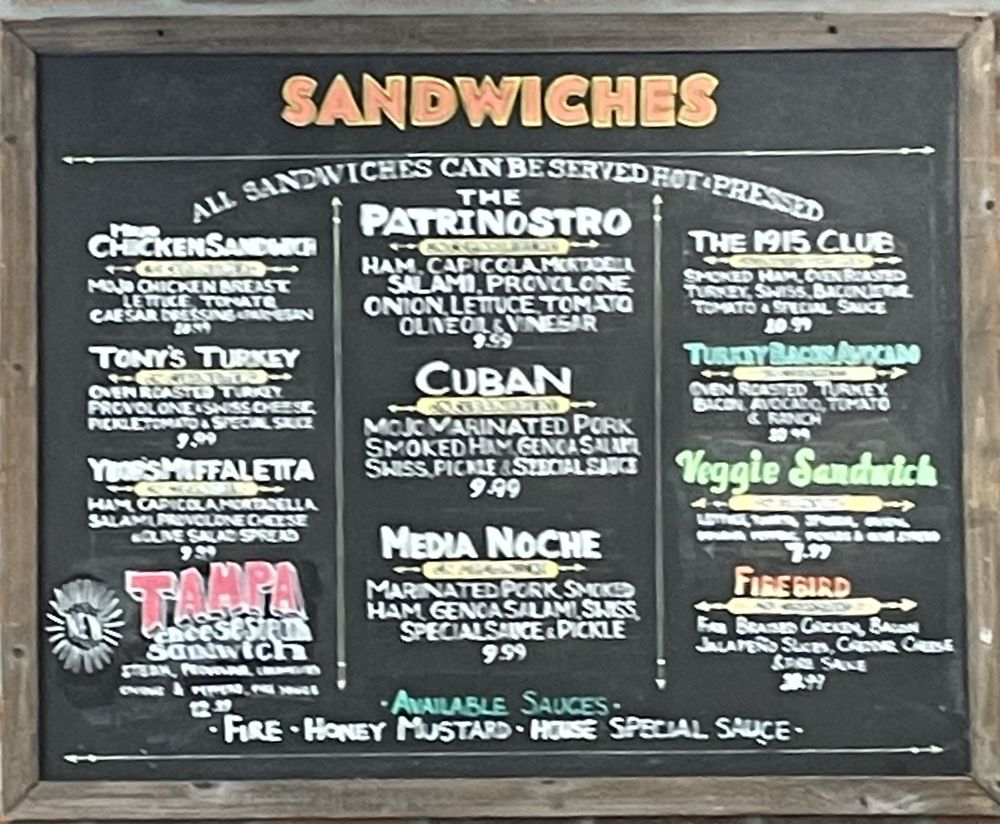 SANDWICHES
ALL SANDWICHES CAN BE SERVED HOT & PRESSED
MOJO
CHICKEN SANDWICH
MOJO CHICKEN BREAST
LETTUCE, TOMATO,
CAESAR DRESSING & PARMESAN
10.99
TONY'S TURKEY
OVEN ROASTED TURKEY,
PROVOLONE & SWISS CHEESE,
PICKLE, TOMATO & SPECIAL SAUCE
9.99
YBOR'S MUFFALETTA
HAM, CAPICOLA, MORTADELLA,
SALAMI, PROVOLONE CHEESE
& OLIVE SALAD SPREAD
9.99
NEW
TAMPA
CHEESESTEAK
SANDWICH
STEAK, PROVOLONE,
ONIONS & PEPPERS, FIRE SAUCE
THE
PATRINOSTRO
HAM, CAPICOLA, MORTADELLA
SALAMI, PROVOLONE
ONION, LETTUCE, TOMATO
OLIVE OIL & VINEGAR
9.99
CUBAN
MOJO MARINATED PORK
SMOKED HAM, GENOA SALAMI,
SWISS, PICKLE & SPECIAL SAUCE
9.99
MEDIA NOCHE
MARINATED PORK, SMOKED
HAM, GENOA SALAMI, SWISS,
SPECIAL SAUCE & PICKLE
9.99
THE 1915 CLUB
SMOKED HAM, OVEN ROASTED
TURKEY, SWISS, BACON, LETTUCE,
TOMATO & SPECIAL SAUCE
10.99
TURKEY BACON AVOCADO
OVEN ROASTED TURKEY,
BACON, AVOCADO, TOMATO
& RANCH
10.99
Veggie Sandwich
LETTUCE, TOMATO, SPINACH, ONION,
PEPPERS, PICKLES & OLIVE SPREAD
7.99
FIREBIRD
FIRE BRAISED CHICKEN, BACON
JALAPEÑO SLICES, CHEDDAR CHEESE
& FIRE SAUCE
10.99
· AVAILABLE SAUCES ·
· FIRE · HONEY MUSTARD · HOUSE SPECIAL SAUCE ·